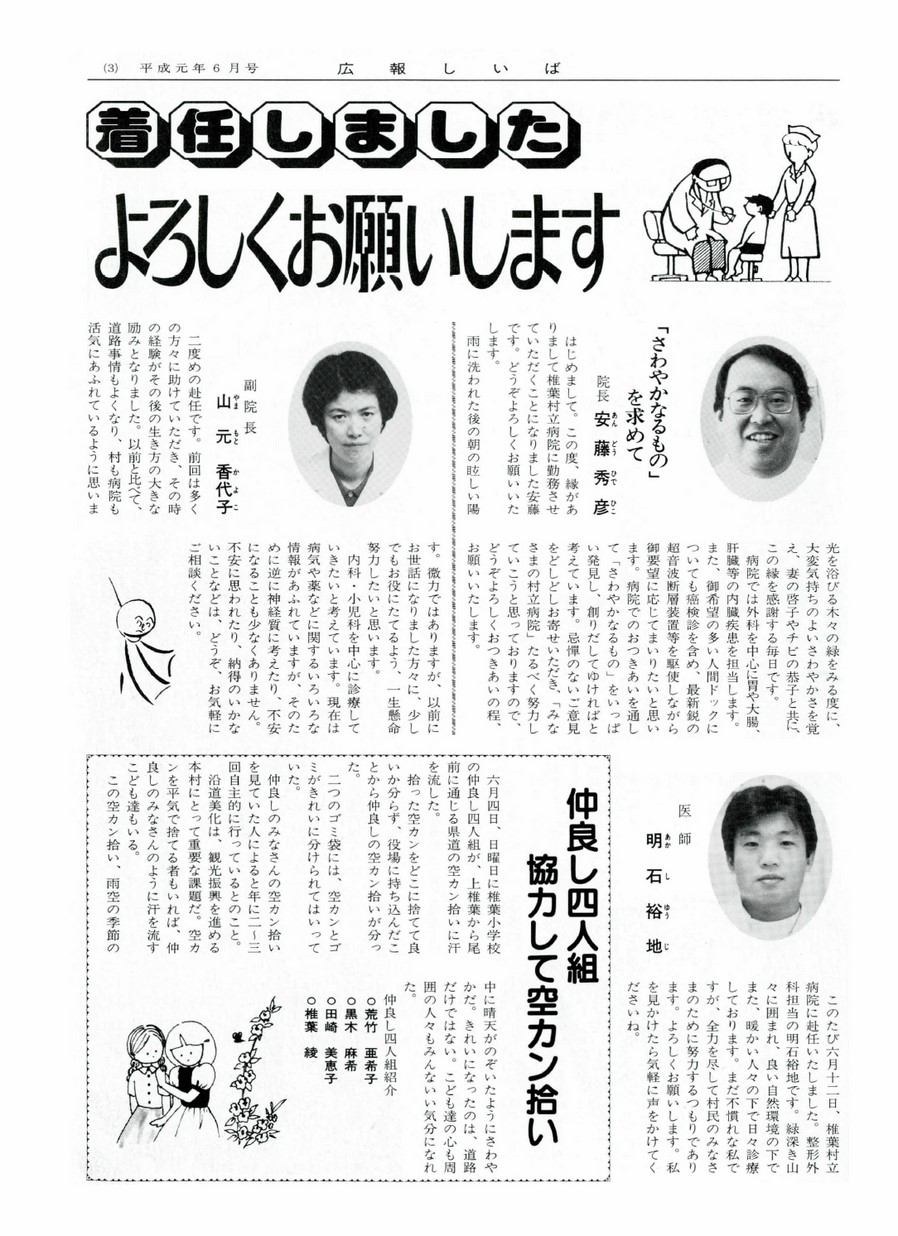 (3) 平成元年6月号 広報しいば
着任しました
よろしくお願いします
「さわやかなるもの」
を求めて
院長 安藤秀彦
あん どう ひで ひこ
はじめまして。この度、縁があ
りまして椎葉村立病院に勤務させ
ていただくことになりました安藤
です。どうぞよろしくお願いいた
します。
雨に洗われた後の朝の眩しい陽
光を浴びる木々の緑をみる度に、
大変気持ちのよいさわやかさを覚
え、妻の啓子やチビの恭子と共に、
この縁を感謝する毎日です。
病院では外科を中心に胃や大腸、
肝臓等の内臓疾患を担当します。
また、御希望の多い人間ドックに
ついても癌検診を含め、最新鋭の
超音波断層装置等を駆使しながら
御要望に応じてまいりたいと思い
ます。病院でのおつきあいを通し
て「さわやかなるもの」をいっぱ
い発見し、創りだしてゆければと
考えています。忌憚のないご意見
をどしどしお寄せいただき、「みな
さまの村立病院」たるべく努力し
ていこうと思っておりますので、
どうぞよろしくおつきあいの程、
お願いいたします。
副院長
山元 香代子
やま もと かよこ
二度めの赴任です。前回は多く
の方々に助けていただき、その時
の経験がその後の生き方の大きな
励みとなりました。以前と比べて、
道路事情もよくなり、村も病院も
活気にあふれているように思いま
す。微力ではありますが、以前に
お世話になりました方々に、少し
でもお役にたてるよう、一生懸命
努力したいと思います。
内科・小児科を中心に診療して
いきたいと考えています。現在は
病気や薬などに関するいろいろな
情報があふれていますが、そのた
めに逆に神経質に考えたり、不安
になることも少なくありません。
不安に思われたり、納得のいかな
いことなどは、どうぞ、お気軽に
ご相談ください。
医師
明石裕地
あか し ゆう じ
このたび六月十二日、椎葉村立
病院に赴任いたしました。整形外
科担当の明石裕地です。緑深き山
々に囲まれ、良い自然環境の下で
また、暖かい人々の下で日々診療
しております。まだ不慣れな私で
すが、全力を尽して村民のみなさ
まのために努力するつもりであり
ます。よろしくお願いします。私
を見かけたら気軽に声をかけてく
ださいね。
仲良し四人組
協力して空カン拾い
六月四日、日曜日に椎葉小学校
の仲良し四人組が、上椎葉から尾
前に通じる県道の空カン拾いに汗
を流した。
拾った空カンをどこに捨てて良
いか分らず、役場に持ち込んだこ
とから仲良しの空カン拾いが分っ
た。
二つのゴミ袋には、空カンとゴ
ミがきれいに分けられてはいって
いた。
仲良しのみなさんの空カン拾い
を見ていた人によると年に二〜三
回自主的に行っているとのこと。
沿道美化は、観光振興を進める
本村にとって重要な課題だ。空カ
ンを平気で捨てる者もいれば、仲
良しのみなさんのように汗を流す
こども達もいる。
この空カン拾い、雨空の季節の
中に晴天がのぞいたようにさわや
かだ。きれいになったのは、道路
だけではない。こども達の心も周
囲の人々もみんないい気分になれ
た。
仲良し四人組紹介
○荒竹 亜希子
○黒木 麻希
○田崎 美恵子
○椎葉 綾